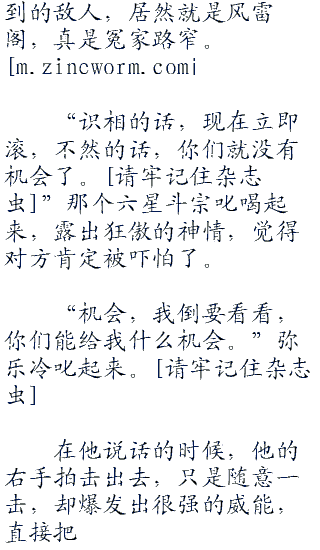 到的敌人，居然就是风雷
阁，真是冤家路窄。
[m.zincworm.com]
“识相的话，现在立即
滚，不然的话，你们就没有
机会了。[请牢记住杂志
虫]”那个六星斗宗叱喝起
来，露出狂傲的神情，觉得
对方肯定被吓怕了。
“机会，我倒要看看，
你们能给我什么机会。”弥
乐冷叱起来。[请牢记住杂志
虫]
在他说话的时候，他的
右手拍击出去，只是随意一
击，却爆发出很强的威能，
直接把